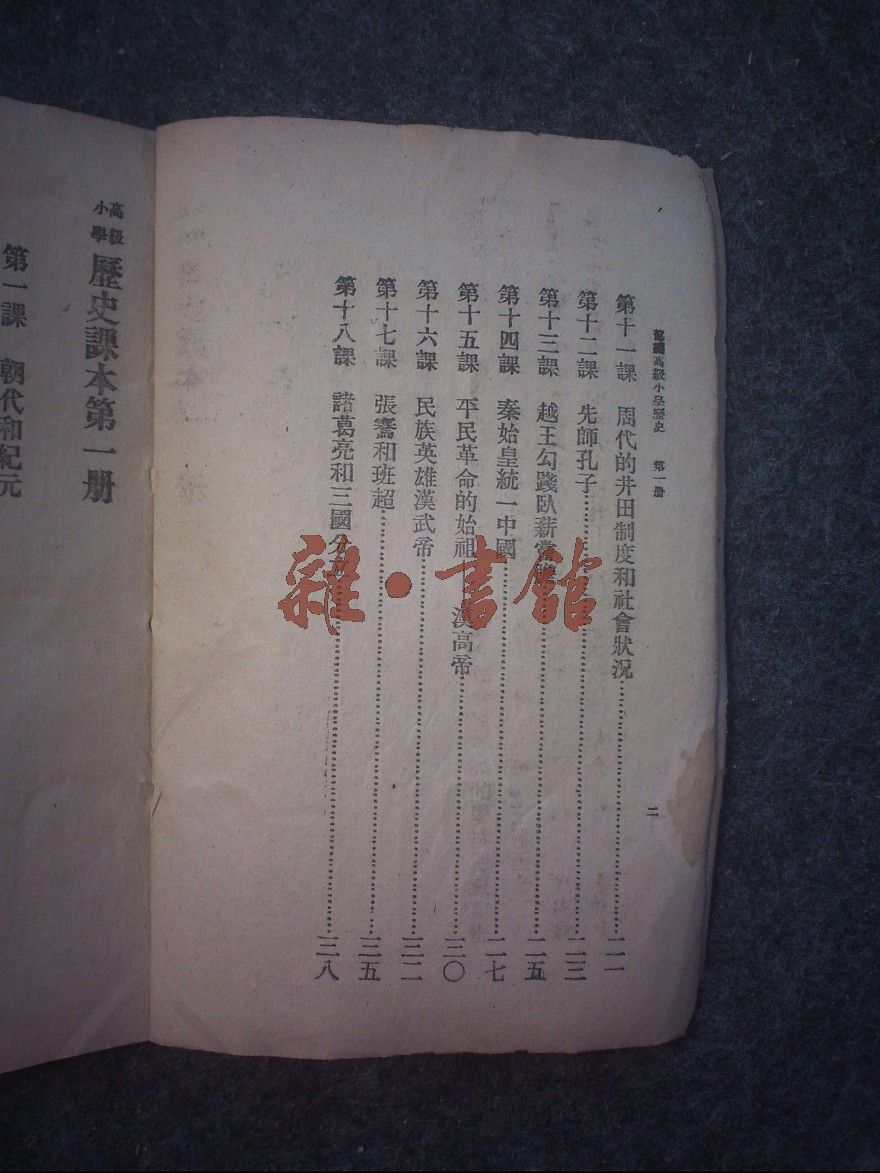 高級小學歷史 第一册
二
第十一課 周代的井田制度和社會狀況……二一
第十二課 先師孔子……二三
第十三課 越王勾踐臥薪嘗膽……二五
第十四課 秦始皇統一中國……二七
第十五課 平民革命的始祖 漢高帝……三〇
第十六課 民族英雄漢武帝……三二
第十七課 張騫和班超……三五
第十八課 諸葛亮和三國分立……三八
高級小學 歷史課本第一册
第一課 朝代和紀元
雜·書館